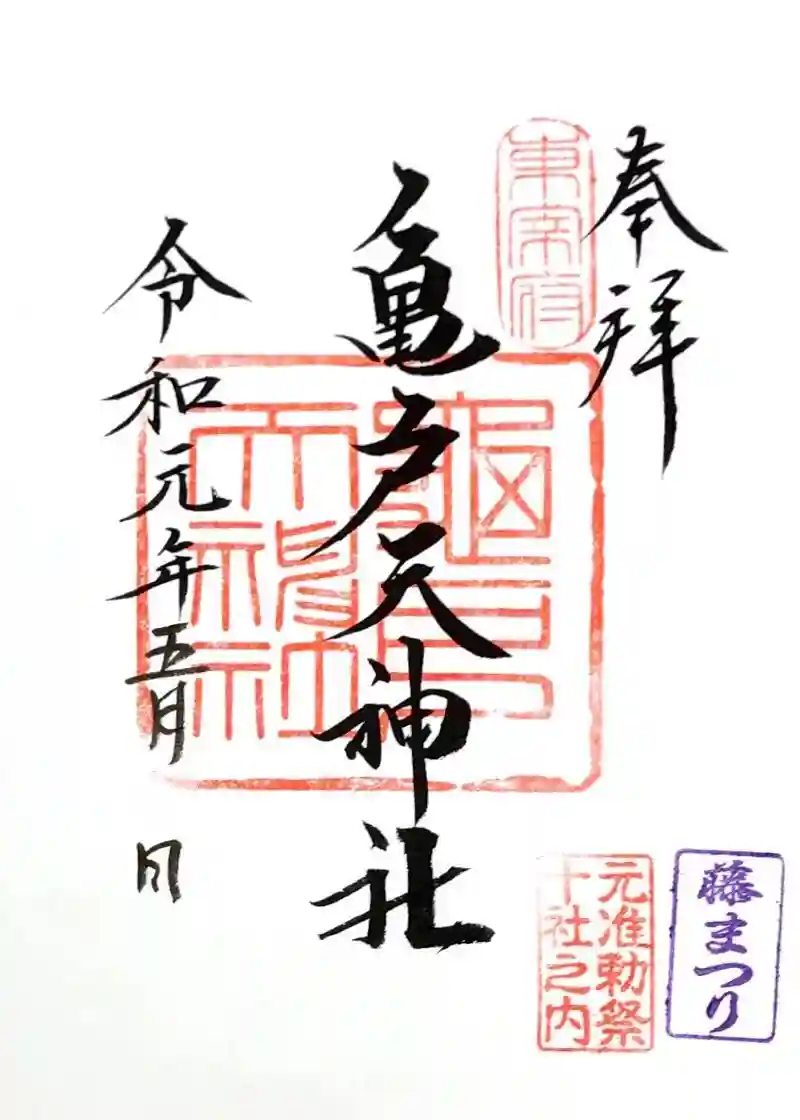 奉拝
東宰府
亀戸天神社
亀戸天神社
令和元年五月 日
藤まつり
元准勅祭
十社之内